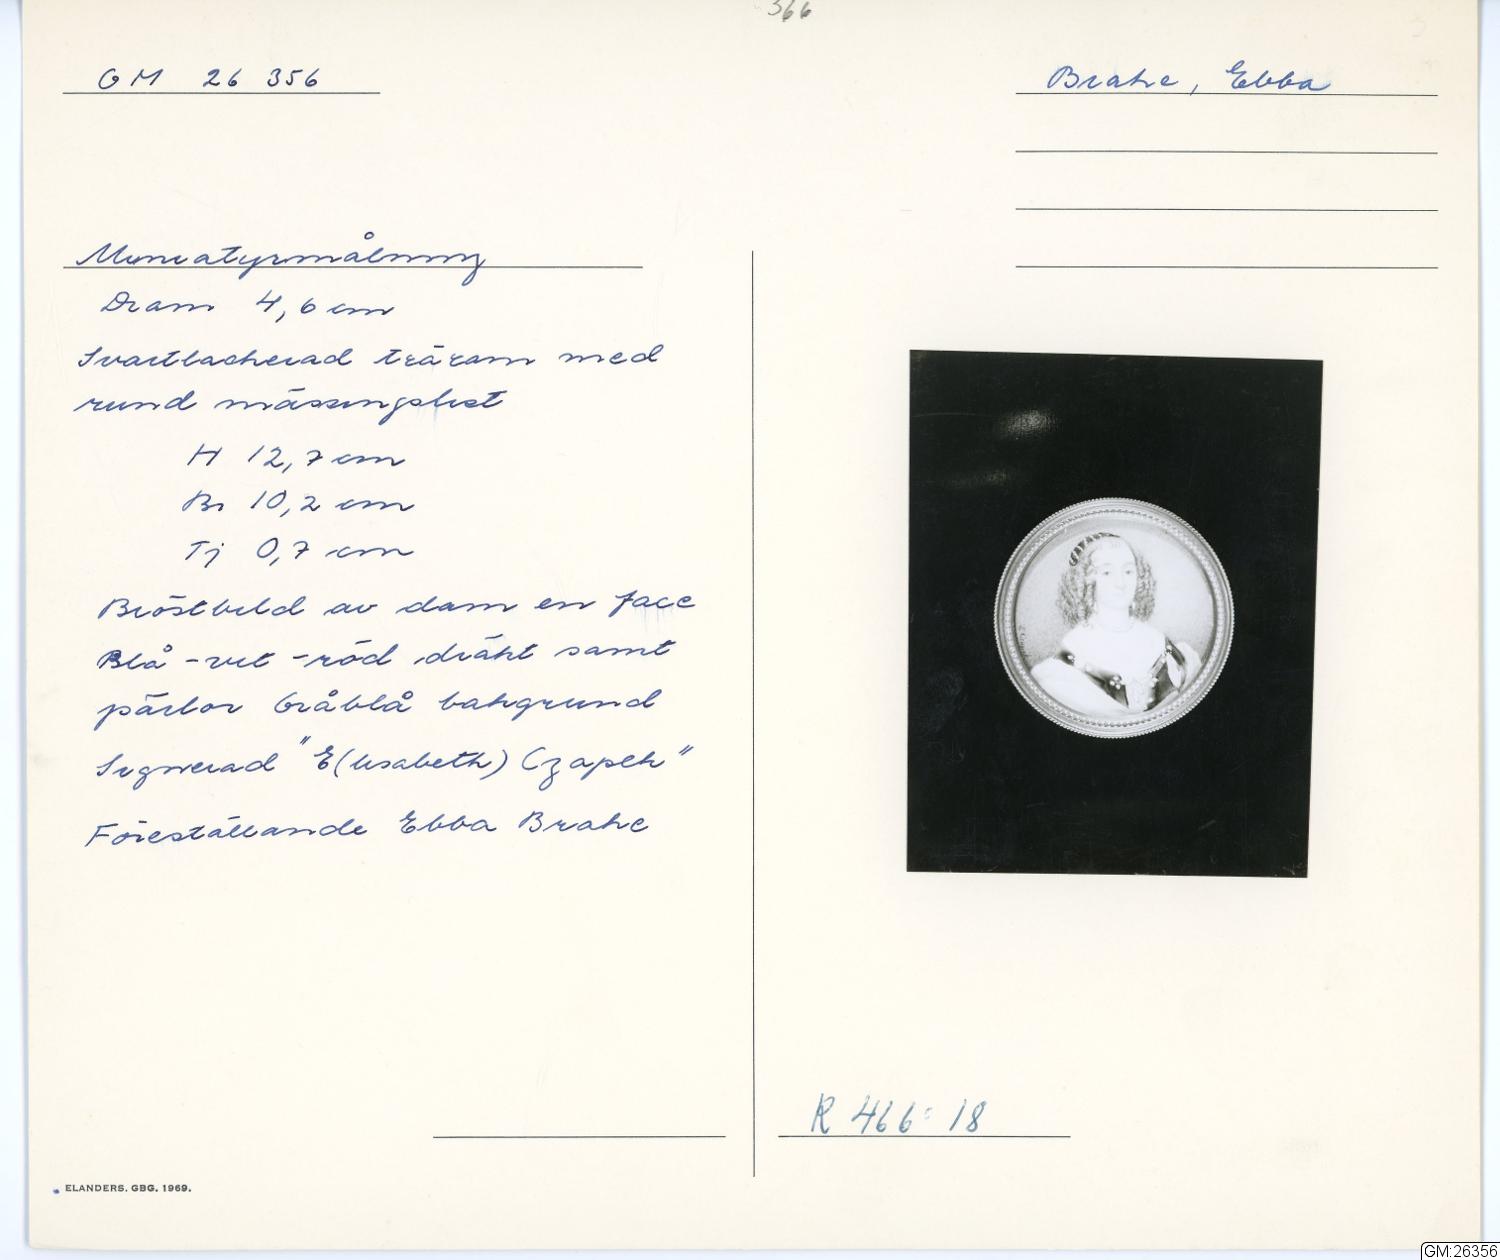 366
GM 26 356
Brahe, Ebba
Miniatyrmålning
Diam 4,6 cm
Svartlackerad träram med
rund mässingslist
H 12,7 cm
Br 10,2 cm
Tj 0,7 cm
Bröstbild av dam en face
Blå-vit-röd dräkt samt
pärlor Gråblå bakgrund
Signerad "E(lisabeth) Czapek"
Föreställande Ebba Brahe
R 466:18
ELANDERS. GBG. 1969.
GM:26356